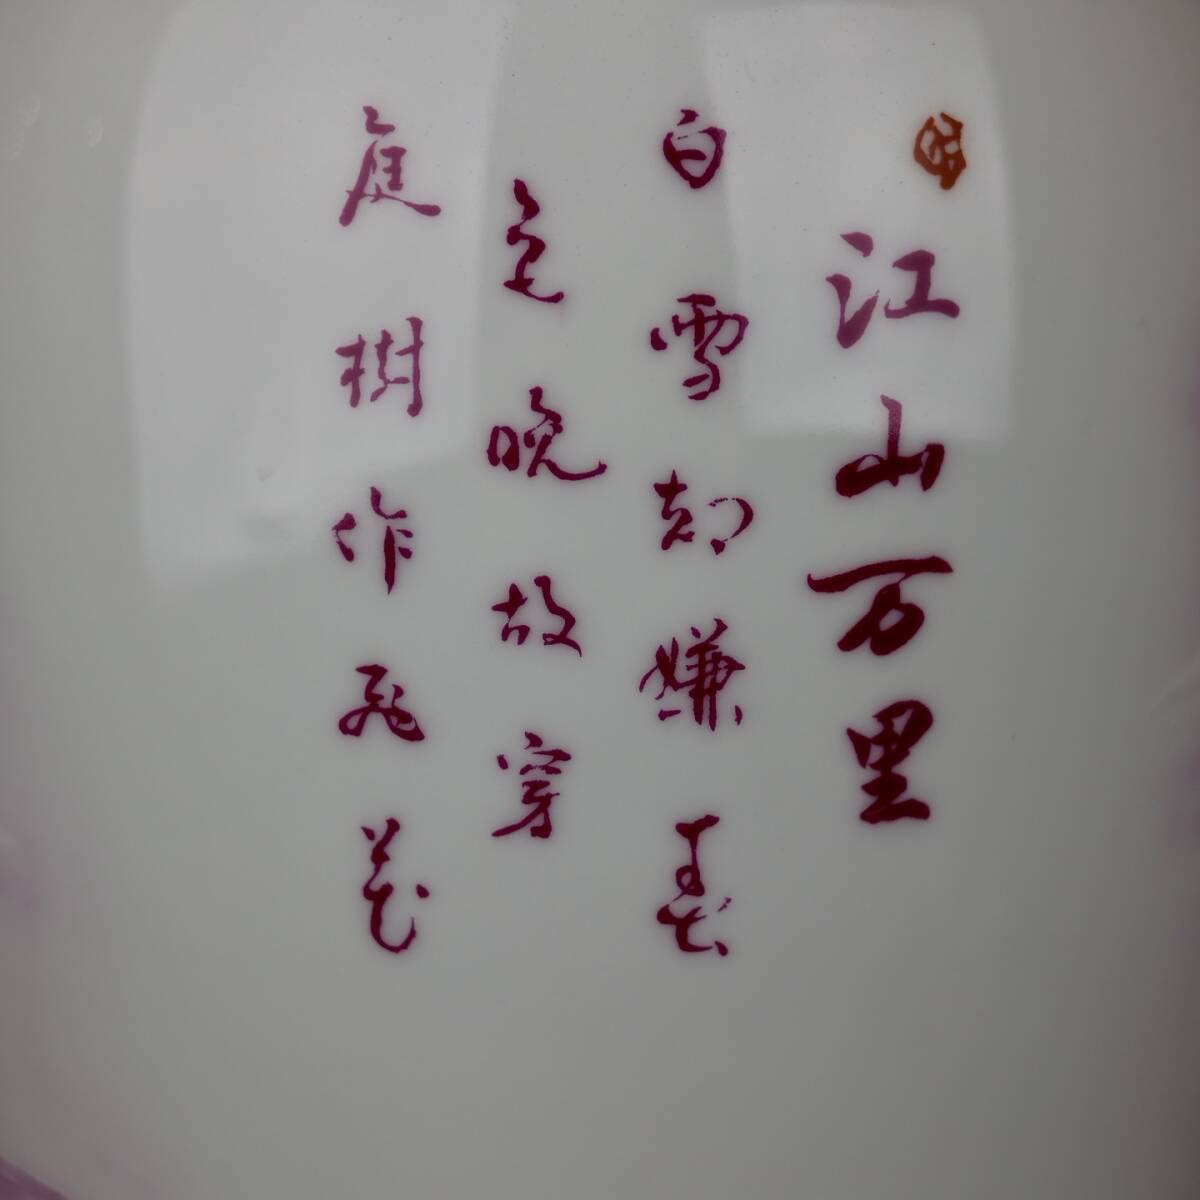 江山万里
白雪却嫌春
色晚故穿
庭樹作飛花